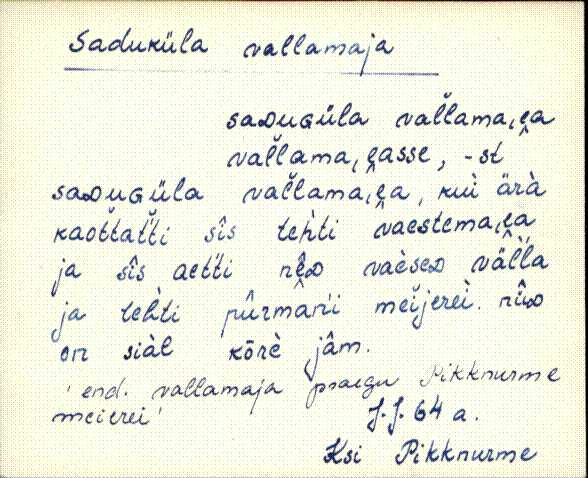 Saduküla vallamaja
saᴅuɢüla val̆lama,i̯a
val̆lama,i̯asse, -st
saᴅuɢüla val̆lama,i̯a, kuì ärà
kaot̆tat̆ti sîs teh̀ti vaestema,i̯a
ja sîs aet̆ti nêᴅ vaèseᴅ väl̆la
ja teh̀ti pûrmańi meijereì. nûᴅ
on siàl kōrè jâm.
'end. vallamaja praegu Pikknurme
meierei'
J.J. 64 a.
Ksi Pikknurme